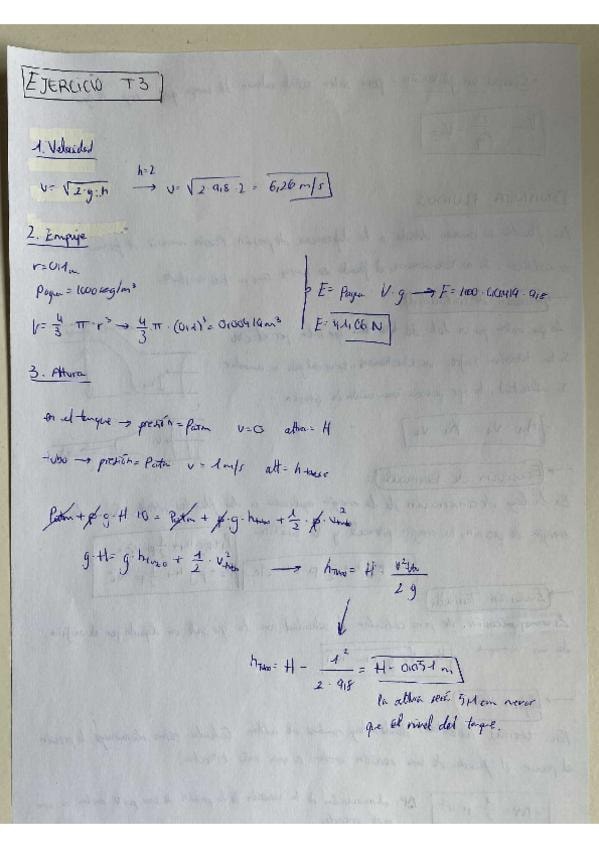 EJERCICIO T3
1. Velocidad
v = √2·g·h → h=2 v = √2·9,8·2 = 6,26 m/s
2. Empuje
r = 0,1m
ρagua = 1000 kg/m³
V = 4/3 · π · r³ → 4/3 π · (0,1)³ = 0,00419 m³
E = ρagua V·g → E = 1000 · 0,00419 · 9,8
E = 41,06 N
3. Altura
en el tanque → presión = Patm v=0 altura = H
tubo → presión = Patm v = 1 m/s alt = h
Patm + ρ·g·H = Patm + ρ·g·htubo + 1/2·ρ·v²tubo
g·H = g·htubo + 1/2·v²tubo → htubo = H - v²/2g
hTubo = H - 1²/2·9,8 = H - 0,051 m
la altura será 5,1 cm menor
que el nivel del tanque.